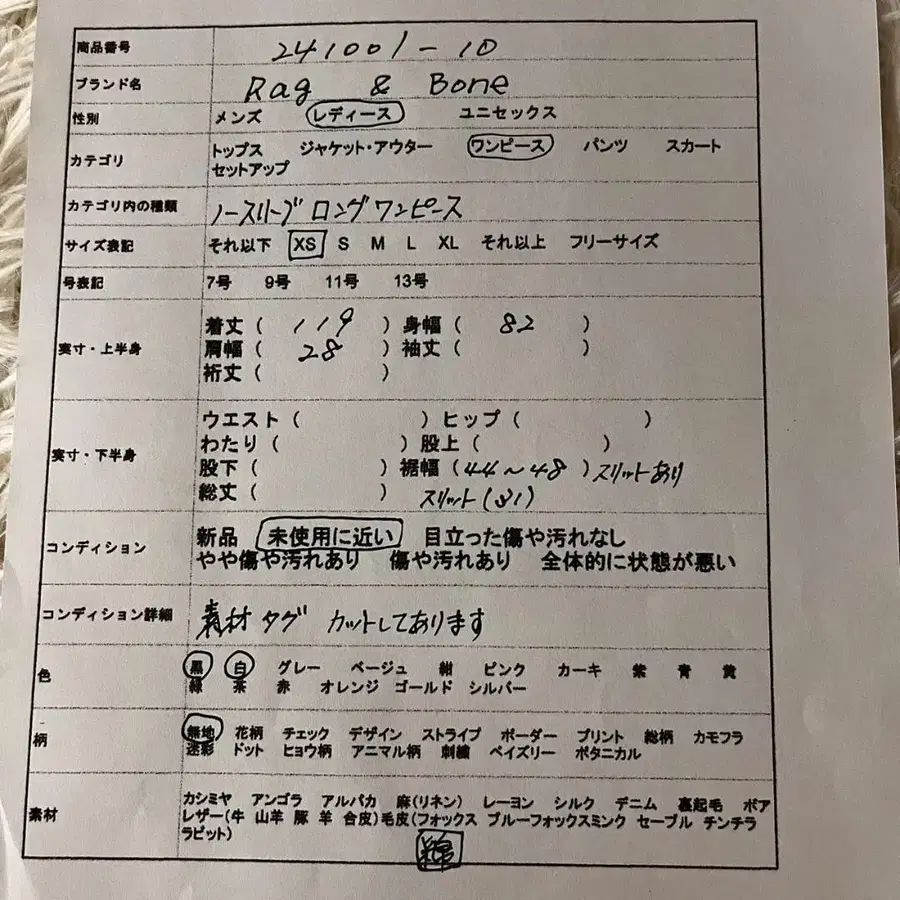 商品番号 241001-10
ブランド名 Rag & Bone
性別 メンズ レディース ユニセックス
カテゴリ トップス ジャケット・アウター ワンピース パンツ スカート
セットアップ
カテゴリ内の種類 ノースリーブ ロングワンピース
サイズ表記 それ以下 XS S M L XL それ以上 フリーサイズ
号表記 7号 9号 11号 13号
実寸・上半身
着丈 ( 119 ) 身幅 ( 82 )
肩幅 ( 28 ) 袖丈 ( )
裄丈 ( )
実寸・下半身
ウエスト ( ) ヒップ ( )
わたり ( ) 股上 ( )
股下 ( ) 裾幅 (44~48) スリットあり
総丈 ( ) スリット(31)
コンディション
新品 未使用に近い 目立った傷や汚れなし
やや傷や汚れあり 傷や汚れあり 全体的に状態が悪い
コンディション詳細 素材タグ カットしてあります
色
黒 白 グレー ベージュ 紺 ピンク カーキ 紫 青 黄
緑 茶 赤 オレンジ ゴールド シルバー
柄
無地 花柄 チェック デザイン ストライプ ボーダー プリント 総柄 カモフラ
迷彩 ドット ヒョウ柄 アニマル柄 刺繍 ペイズリー ボタニカル
素材
カシミヤ アンゴラ アルパカ 麻(リネン) レーヨン シルク デニム 裏起毛 ボア
レザー(牛 山羊 豚 羊 合皮)毛皮(フォックス ブルーフォックスミンク セーブル チンチラ
ラビット)
綿